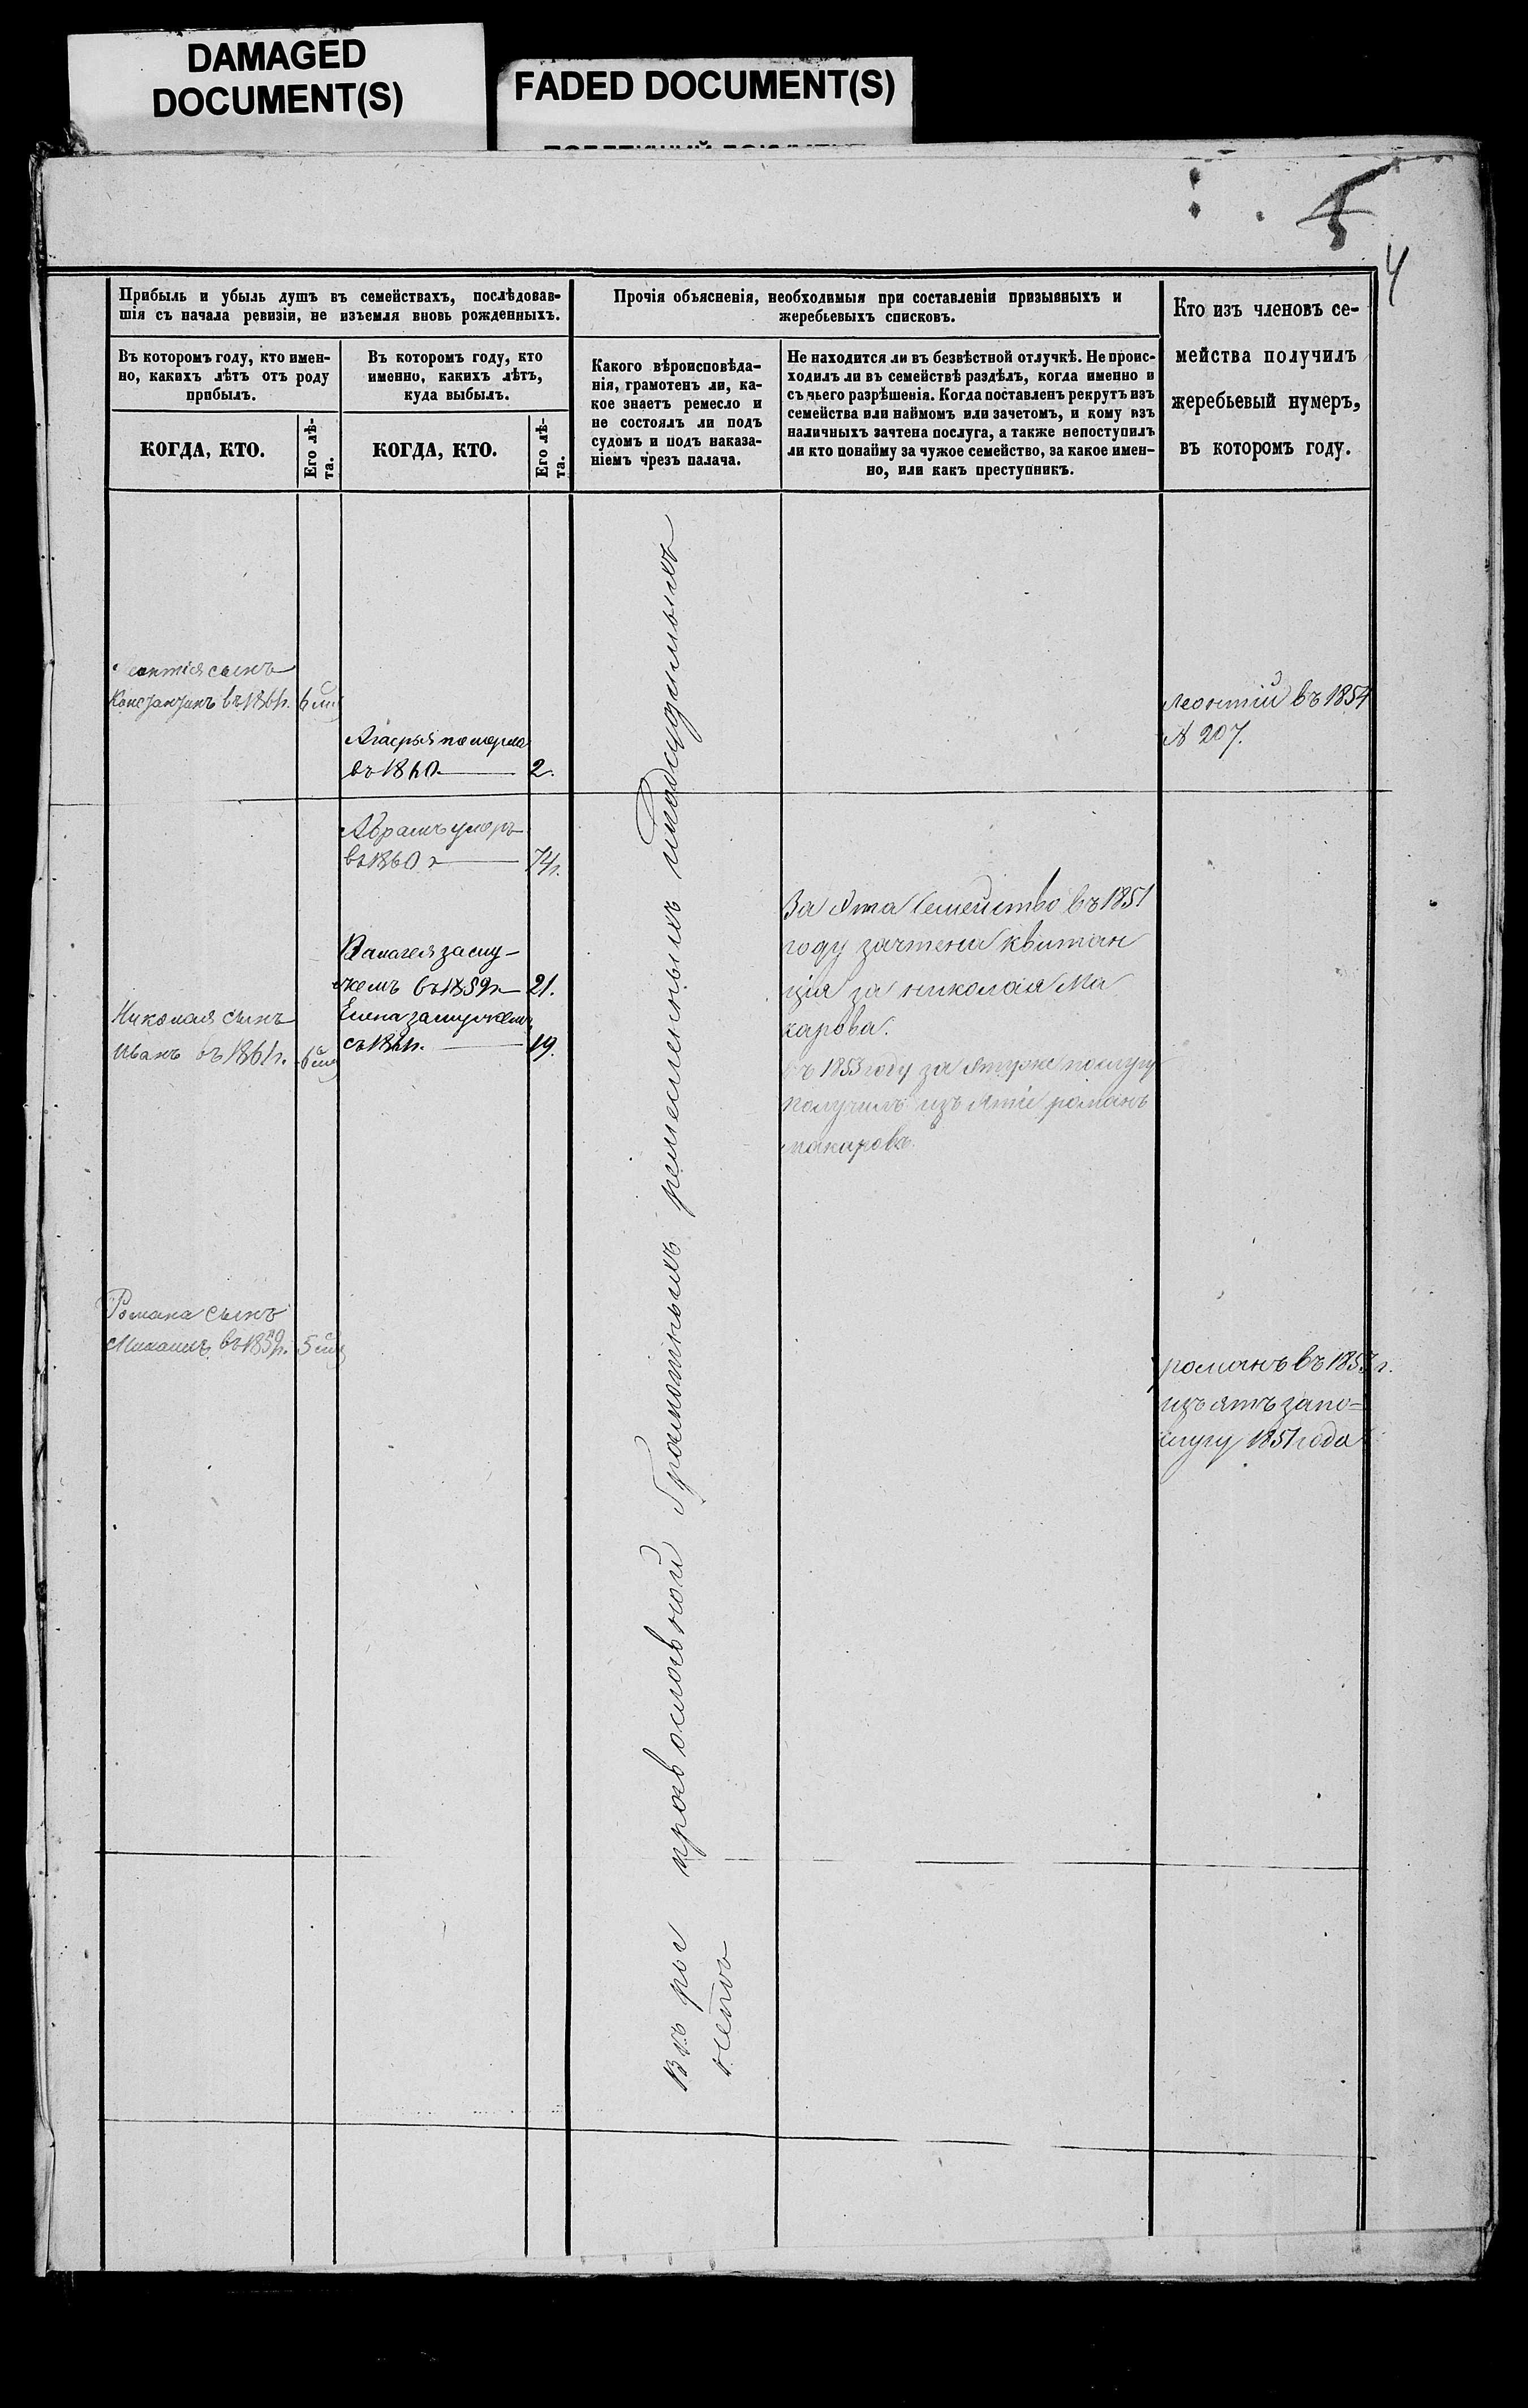 DAMAGED
DOCUMENT(S)
FADED DOCUMENT(S)
5
4
Прибыль и убыль душъ въ семействахъ, послѣдовав-
шія съ начала ревизіи, не изъемля вновь рожденныхъ.
Въ которомъ году, кто имен-
но, какихъ лѣтъ отъ роду
прибылъ.
КОГДА, КТО.
Его лѣ-
та.
Въ которомъ году, кто
именно, какихъ лѣтъ,
куда выбылъ.
КОГДА, КТО.
Его лѣ-
та.
Прочія объясненія, необходимыя при составленіи призывныхъ и
жеребьевыхъ списковъ.
Какого вѣроисповѣда-
нія, грамотенъ ли, ка-
кое знаетъ ремесло и
не состоялъ ли подъ
судомъ и подъ наказа-
ніемъ чрезъ палача.
Не находится ли въ безвѣстной отлучкѣ. Не проис-
ходилъ ли въ семействѣ раздѣлъ, когда именно и
съ чьего разрѣшенія. Когда поставленъ рекрутъ изъ
семейства или наймомъ или зачетомъ, и кому изъ
наличныхъ зачтена послуга, а также непоступилъ
ли кто понайму за чужое семейство, за какое имен-
но, или какъ преступникъ.
Кто изъ членовъ се-
мейства получилъ
жеребьевый нумеръ,
въ которомъ году.
Леонтія сынъ
въ 1861г. 6
померла
въ 1860 2.
Леонтій въ 1854
№ 207.
Абрамъ умеръ
въ 1860 г 74г.
замуж-
жемъ въ 1859г 21.
Елена замужемъ
съ 1861г. 19.
Николая сынъ
Иванъ въ 1861г. 6
За Семейство въ 1851
году зачтена квитан
ція за николая Ма
карова.
въ 1853 году за послугу
получилъ изъ романъ
макаровъ.
Романа сынъ
Михаилъ въ 1859г. 5
романъ въ 1853г.
изъ запо=
слугу 1851 года
Грамотныхъ ремесленыхъ и подсудимыхъ
нетъ